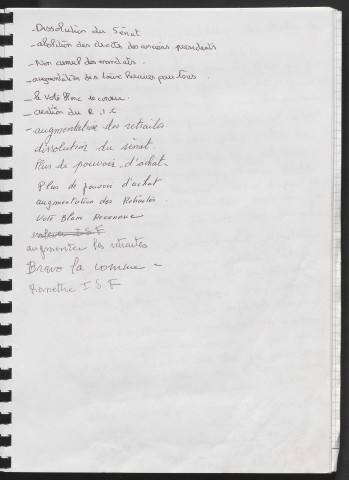 - Dissolution du Sénat
- abolition des droits des anciens présidents
- Non cumul des mandats.
- augmentation des bas pour tous.
- le Vote Blanc reconnu.
- création du R.I.C
- augmentation des retraites.
dissolution du sénat.
Plus de pouvoir d'achat.
Plus de pouvoir d'achat
augmentation des Retraites
Vote Blanc Reconnue
I S F
augmenter les retraites
Bravo la commune -
Remettre I S F